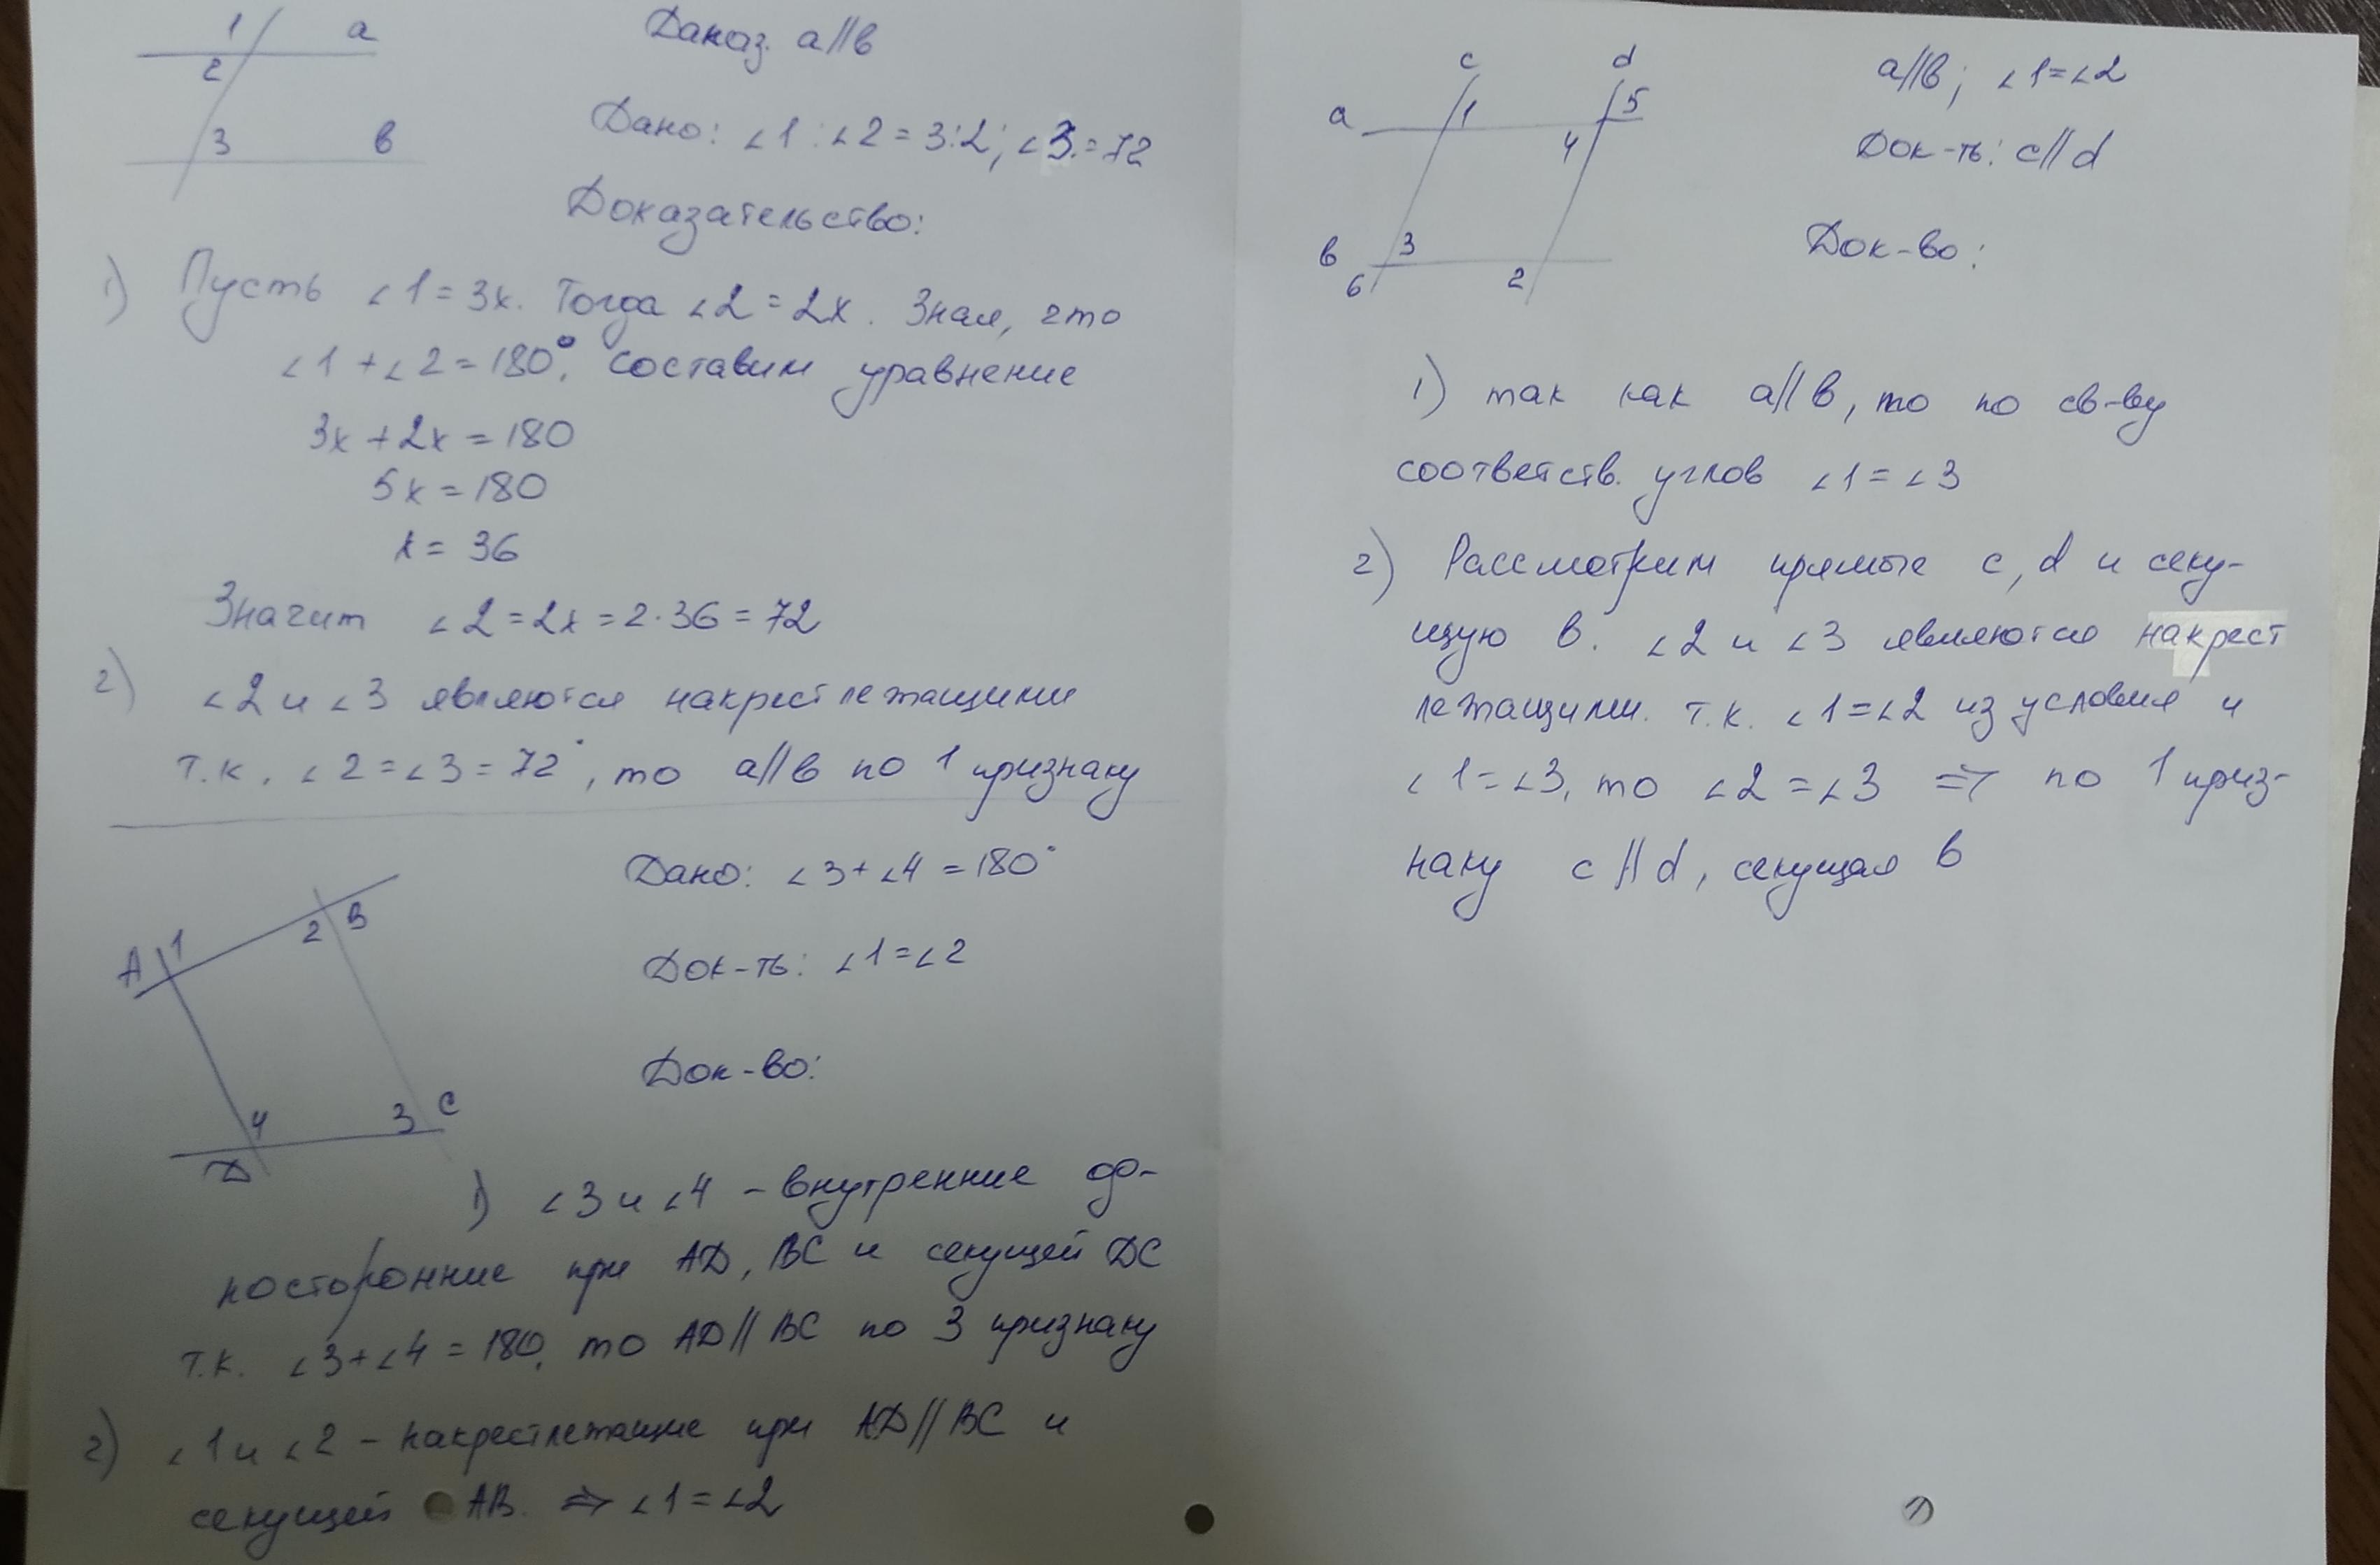 1 a
2
3 в
Доказ. a//в
Дано: ∠1:∠2=3:2; ∠3=72
Доказательство:
1) Пусть ∠1=3x. Тогда ∠2=2x. Зная, что
∠1+∠2=180°, составим уравнение
3x+2x=180
5x=180
x=36
Значит ∠2=2x=2·36=72
2) ∠2 и ∠3 являются накрестлежащими
т.к. ∠2=∠3=72°, то a//в по 1 признаку
A 1 2 B
4 3 C
D
Дано: ∠3+∠4=180°
Док-ть: ∠1=∠2
Док-во:
1) ∠3 и ∠4 – внутренние од-
носторонние при AD, BC и секущей DC
т.к. ∠3+∠4=180, то AD//BC по 3 признаку
2) ∠1 и ∠2 – накрестлежащие при AD//BC и
секущей AB. ⇒ ∠1=∠2
c d
a 1 5
4
в 3
6 2
a//в; ∠1=∠2
Док-ть: c//d
Док-во:
1) так как a//в, то по св-ву
соответств. углов ∠1=∠3
2) Рассмотрим прямые c, d и секу-
щую в. ∠2 и ∠3 являются накрест
лежащими. т.к. ∠1=∠2 из условия и
∠1=∠3, то ∠2=∠3 ⇒ по 1 приз-
наку c//d, секущая в